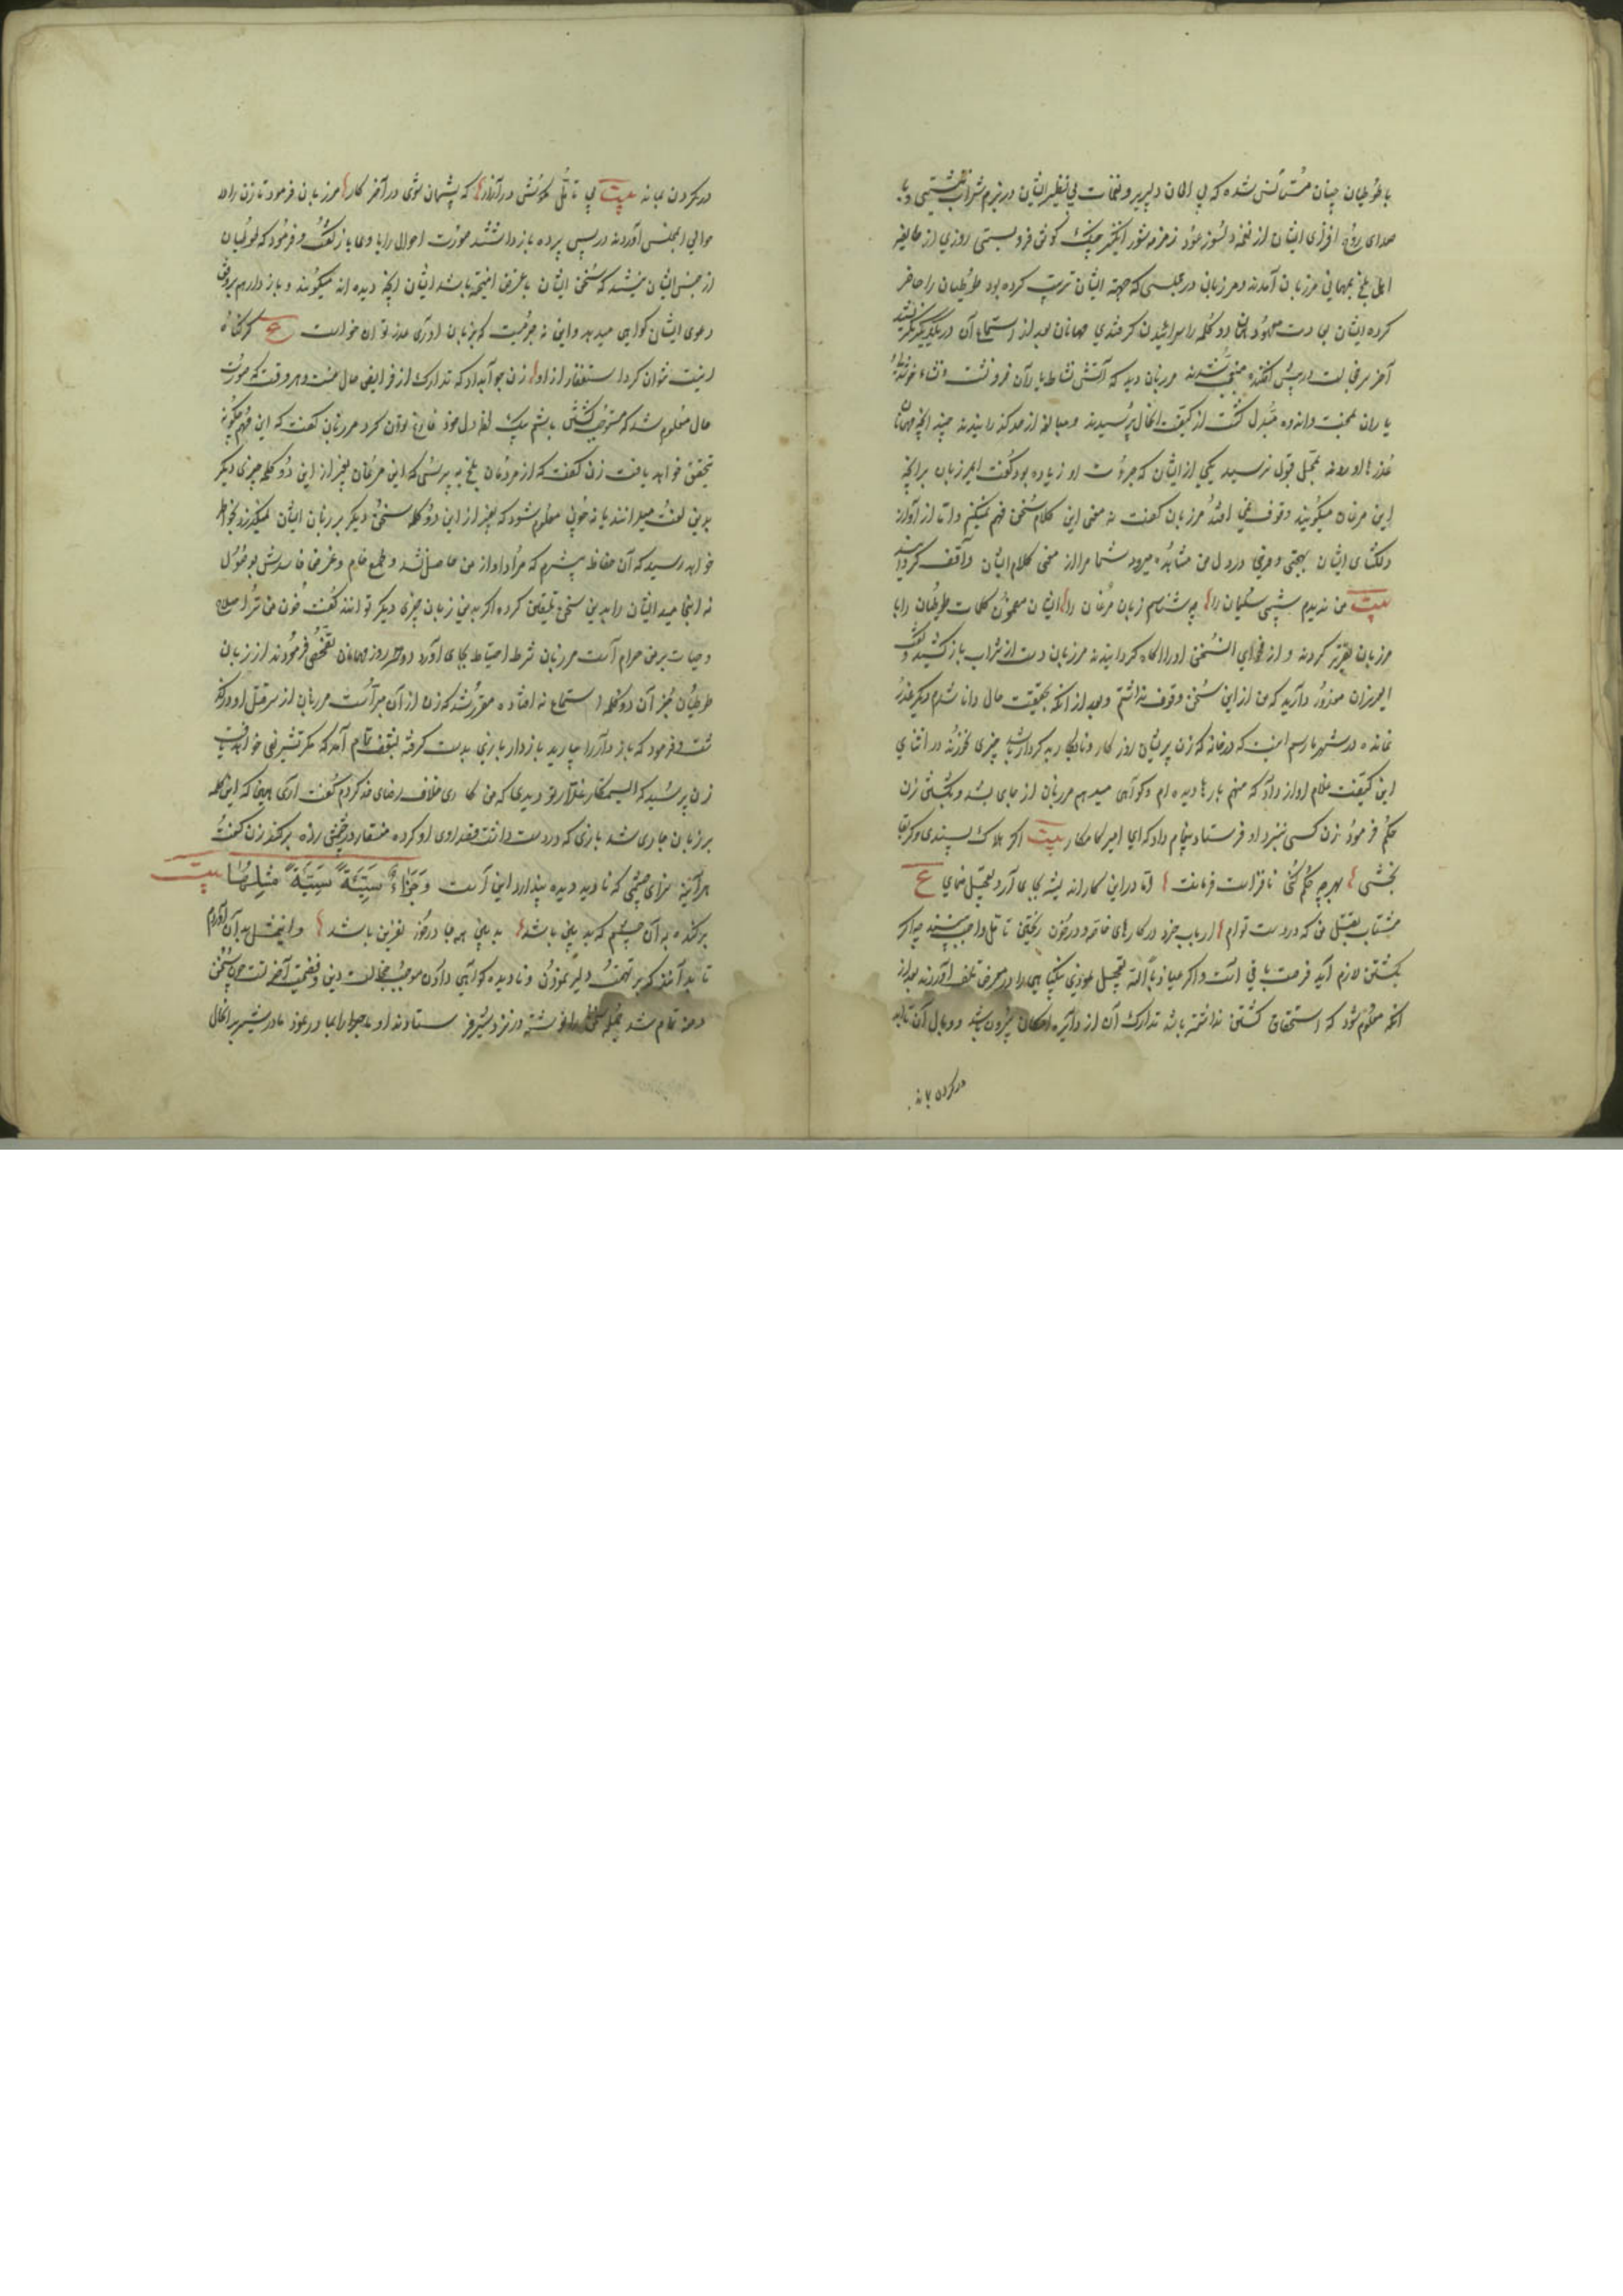 با طوطیان چنان مستأنس شده که بی الحان دلپذیر و نغمات بی نظیر ایشان در بزم شراب نشستی و با
صدای روح افزای ایشان از نغمه دلسوز عود زمزمه شور انگیز چنگ گوش فرو بستی روزی از طایفه
اهل بلخ بمهمانی مرزبان آمدند و مرزبان در مجلسی که جهة ایشان ترتیب کرده بود طوطیان را حاضر
کرده ایشان بعادت معهود همان دو کلمه را سرائیدن گرفتندی مهمانان بعد از استماع آن در یکدیگر نگریستند
آخر سر خجالت در پیش افکنده متعجب شدند مرزبان دید که آتش نشاط یاران فرو نشست و نشاء
یاران بمحنت و اندوه مبدل گشت از کیفیت الحال پرسیدند و مبالغه از حد گذرانیدند چند آنچه مهمانان
عذرها آوردند بمحل قبول نرسید یکی از ایشان که جرءت او زیاده بود گفت ای مرزبان بر آنچه
این مرغان میگویند وقوف نمی افتد مرزبان گفت نه معنی این کلام سخن فهم نمیکنم و اما از آواز
دلگشای ایشان بهجتی و فرحی در دل من مشاهده میرود شما مرا از معنی کلام ایشان واقف گردانید
بیت من ندیدم شبی سلیمان را چه شناسم زبان مرغان را ایشان مضمون کلمات طوطیان را با
مرزبان تقریر کردند و از فحوای السخن او را آگاه گردانیدند مرزبان دست از شراب باز کشید و گفت
ای عزیزان معذور دارید که من از این سخن وقوف نداشتم و بعد از آنکه بحقیقت حال دانا شدم دیگر عذر
نمانده در شهر ما رسم نیست که در خانه که زن پریشان روزگار و نابکار بد کردار باشد چیزی خورند در اثنای
این کیفیت غلام آواز داد که منهم بارها دیده ام و گواهی میدهم مرزبان از جای بشد و بکشتن زن
حکم فرمود زن کسی نزد او فرستاد و پیغام داد که ای امیر کامکار بیت اگر هلاک پسندی و گر بقا
بخشی بهر چه حکم کنی نافذ است فرمانت اما در این کار اندیشه بجای آر و تعجیل منمای ع
مشتاب بقتل من که در دست توام ارباب خرد در کارهای خاصه در خون ریختن تأمل واجب بینند چه اگر
بکشتن لازم آید فرصت باقی است و اگر عیاذ بالله تعجیل نموده بی گناهی را در معرض تلف آورند بعد از
آنکه معلوم شود که استحقاق کشتن نداشته باشد تدارک آن از دائره امکان بیرون باشد و وبال آن تا ابد
در گردن بماند
در گردن بماند بیت بی تأمل مکوش در آزار که پشیمان شوی در آخر کار مرزبان فرمود تا زن را در
حوالی مجلس آوردند در پس پرده باز داشتند صورت احوال را با وی باز گفت و فرمود که طوطیان
از جنس ایشان نیستند که سخن ایشان با غرض آمیخته باشد ایشان آنچه دیده اند میگویند و باز دار هم بر وفق
دعوی ایشان گواهی میدهد و این نه جرمیست که بزبان آوری عذر توان خواست ع که گناه
نیست نتوان کرد استغفار از او زن جواب داد که تدارک از فرایض حال منست و هر وقت که صورت
حال معلوم شد که مستوجب کشتن باشم بیک لحظه دل خود فارغ توان کرد مرزبان گفت که این مهم چگونه
تحقیق خواهد یافت زن گفت که از مردمان بلخ بپرسی که این مرغان بغیر از این دو کلمه چیزی دیگر
بدین لغت میدانند یا نه چون معلوم شود که بغیر از این دو کلمه سخن دیگر بر زبان ایشان نمیگذرد بخاطر
خواهد رسید که آن حفاظ بیشرم که مراد او از من حاصل نشد و طمع خام و غرض فاسدش بوصول
نه انجامید ایشان را بدین سخن تلقین کرده اگر بدین زبان چیزی دیگر توانند گفت خون من ترا حلال
و حیات بر من حرام است مرزبان شرط احتیاط بجای آورد دو سه روز مهمانان تفحص فرمودند از زبان
طوطیان بجز آن دو کلمه استماع نه افتاد مقرر شد که زن از آن مبراست مرزبان از سر قتل او در گذ
شت و فرمود که باز دار را بیارید باز دار بازی بدست گرفته بشعف تمام آمد که مگر تشریفی خواهد یافت
زن پرسید که ای ستمکار غدار تو دیدی که من کاری خلاف رضای خدا کردم گفت آری همین که این کلمه
بر زبان جاری شد بازی که در دست داشت قصد روی او کرده منقار در چشمش زده بر کند زن گفت
هر آینه سزای چشمی که نادیده دیده پندارد این است وَجَزَاءُ سَيِّئَةٍ سَيِّئَةٌ مِثْلُهَا بیت
بر کنده به آن چشم که بد بین باشد بد بین همه جا در خور نفرین باشد و این مثل بدان آوردم
تا بدانند که بر تهمت دلیر نمودن و نادیده گواهی دادن موجب خجالت دنیا و فضیحت آخرتست چون سخن
دمنه تمام شد بجمله سخن را نوشته در نزد شیر فرستادند او ماجرا را بمادر نمود مادر شیر بر الحال